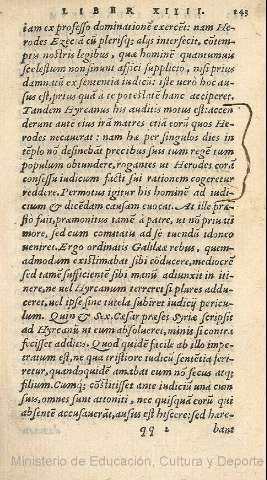 LIBER XIIII. 243
iam ex professo dominationē exercēt: nam He
rodes Ezeciā cū plerisq; alijs interfecit, cōtem-
ptis nostris legibus, quæ hominē quantumuis
scelestum non sinunt affici supplicio, nisi prius
damnatū ex sententia iudicū: iste uerò hoc au-
sus est, prius quā à te potestatē hanc acciperet.
Tandem Hyrcanus his auditis motus est: accen
derunt aūt eius irā matres etiā eorū quos He-
rodes necauerat: nam hæ per singulos dies in
tēplo nō desinebāt precibus suis tum regē tum
populum obtundere, rogantes ut Herodes corā
consessu iudicum facti sui rationem cogeretur
reddere. Permotus igitur his hominē ad iudi-
cium & dicēdam causam euocat. At ille præ-
stò fuit, præmonitus tamē à patre, ut nō priuati
more, sed cum comitatu ad se tuendū idoneo
ueniret. Ergo ordinatis Galilææ rebus, quem-
admodum existimabat sibi cōducere, mediocrē
sed tamē sufficientē sibi manū adiunxit in iti-
nere, ne uel Hyrcanum terreret si plures addu-
ceret, uel ipse sine tutela subiret iudicij pericu-
lum. Quin & Sex. Cæsar præses Syriæ scripsit
ad Hyrcanū ut eum absolueret, minis si contrà
fecisset additis. Quod quidē facile ab illo impe-
tratum est, ne qua tristiore iudicū sentētia feri-
retur, quandoquidē amabat eum nō secus atq;
filium. Cumq; cōstitisset ante iudiciū una cum
suis, omnes sunt attoniti, nec quisquā eorū qui
absentē accusauerāt, ausus est hiscere: sed hære-
qq 2 bant
Ministerio de Educación, Cultura y Deporte